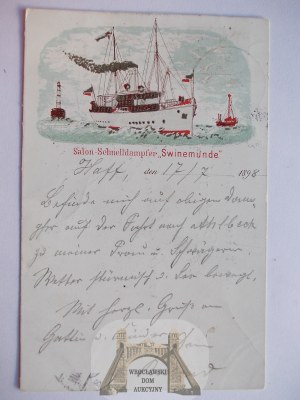 Salon-Schnelldampfer „Swinemünde“
Haff, den 17/7 1898
Befinde mich auf obigen Dam-
pfer auf der Fahrt nach Ahlbeck
zu meiner Frau u. Schwägerin.
Wetter stürmisch u. See bewegt.
Mit herzl. Gruß an
Gattin u. Kinder
WROCŁAWSKI
DOM
AUKCYJNY